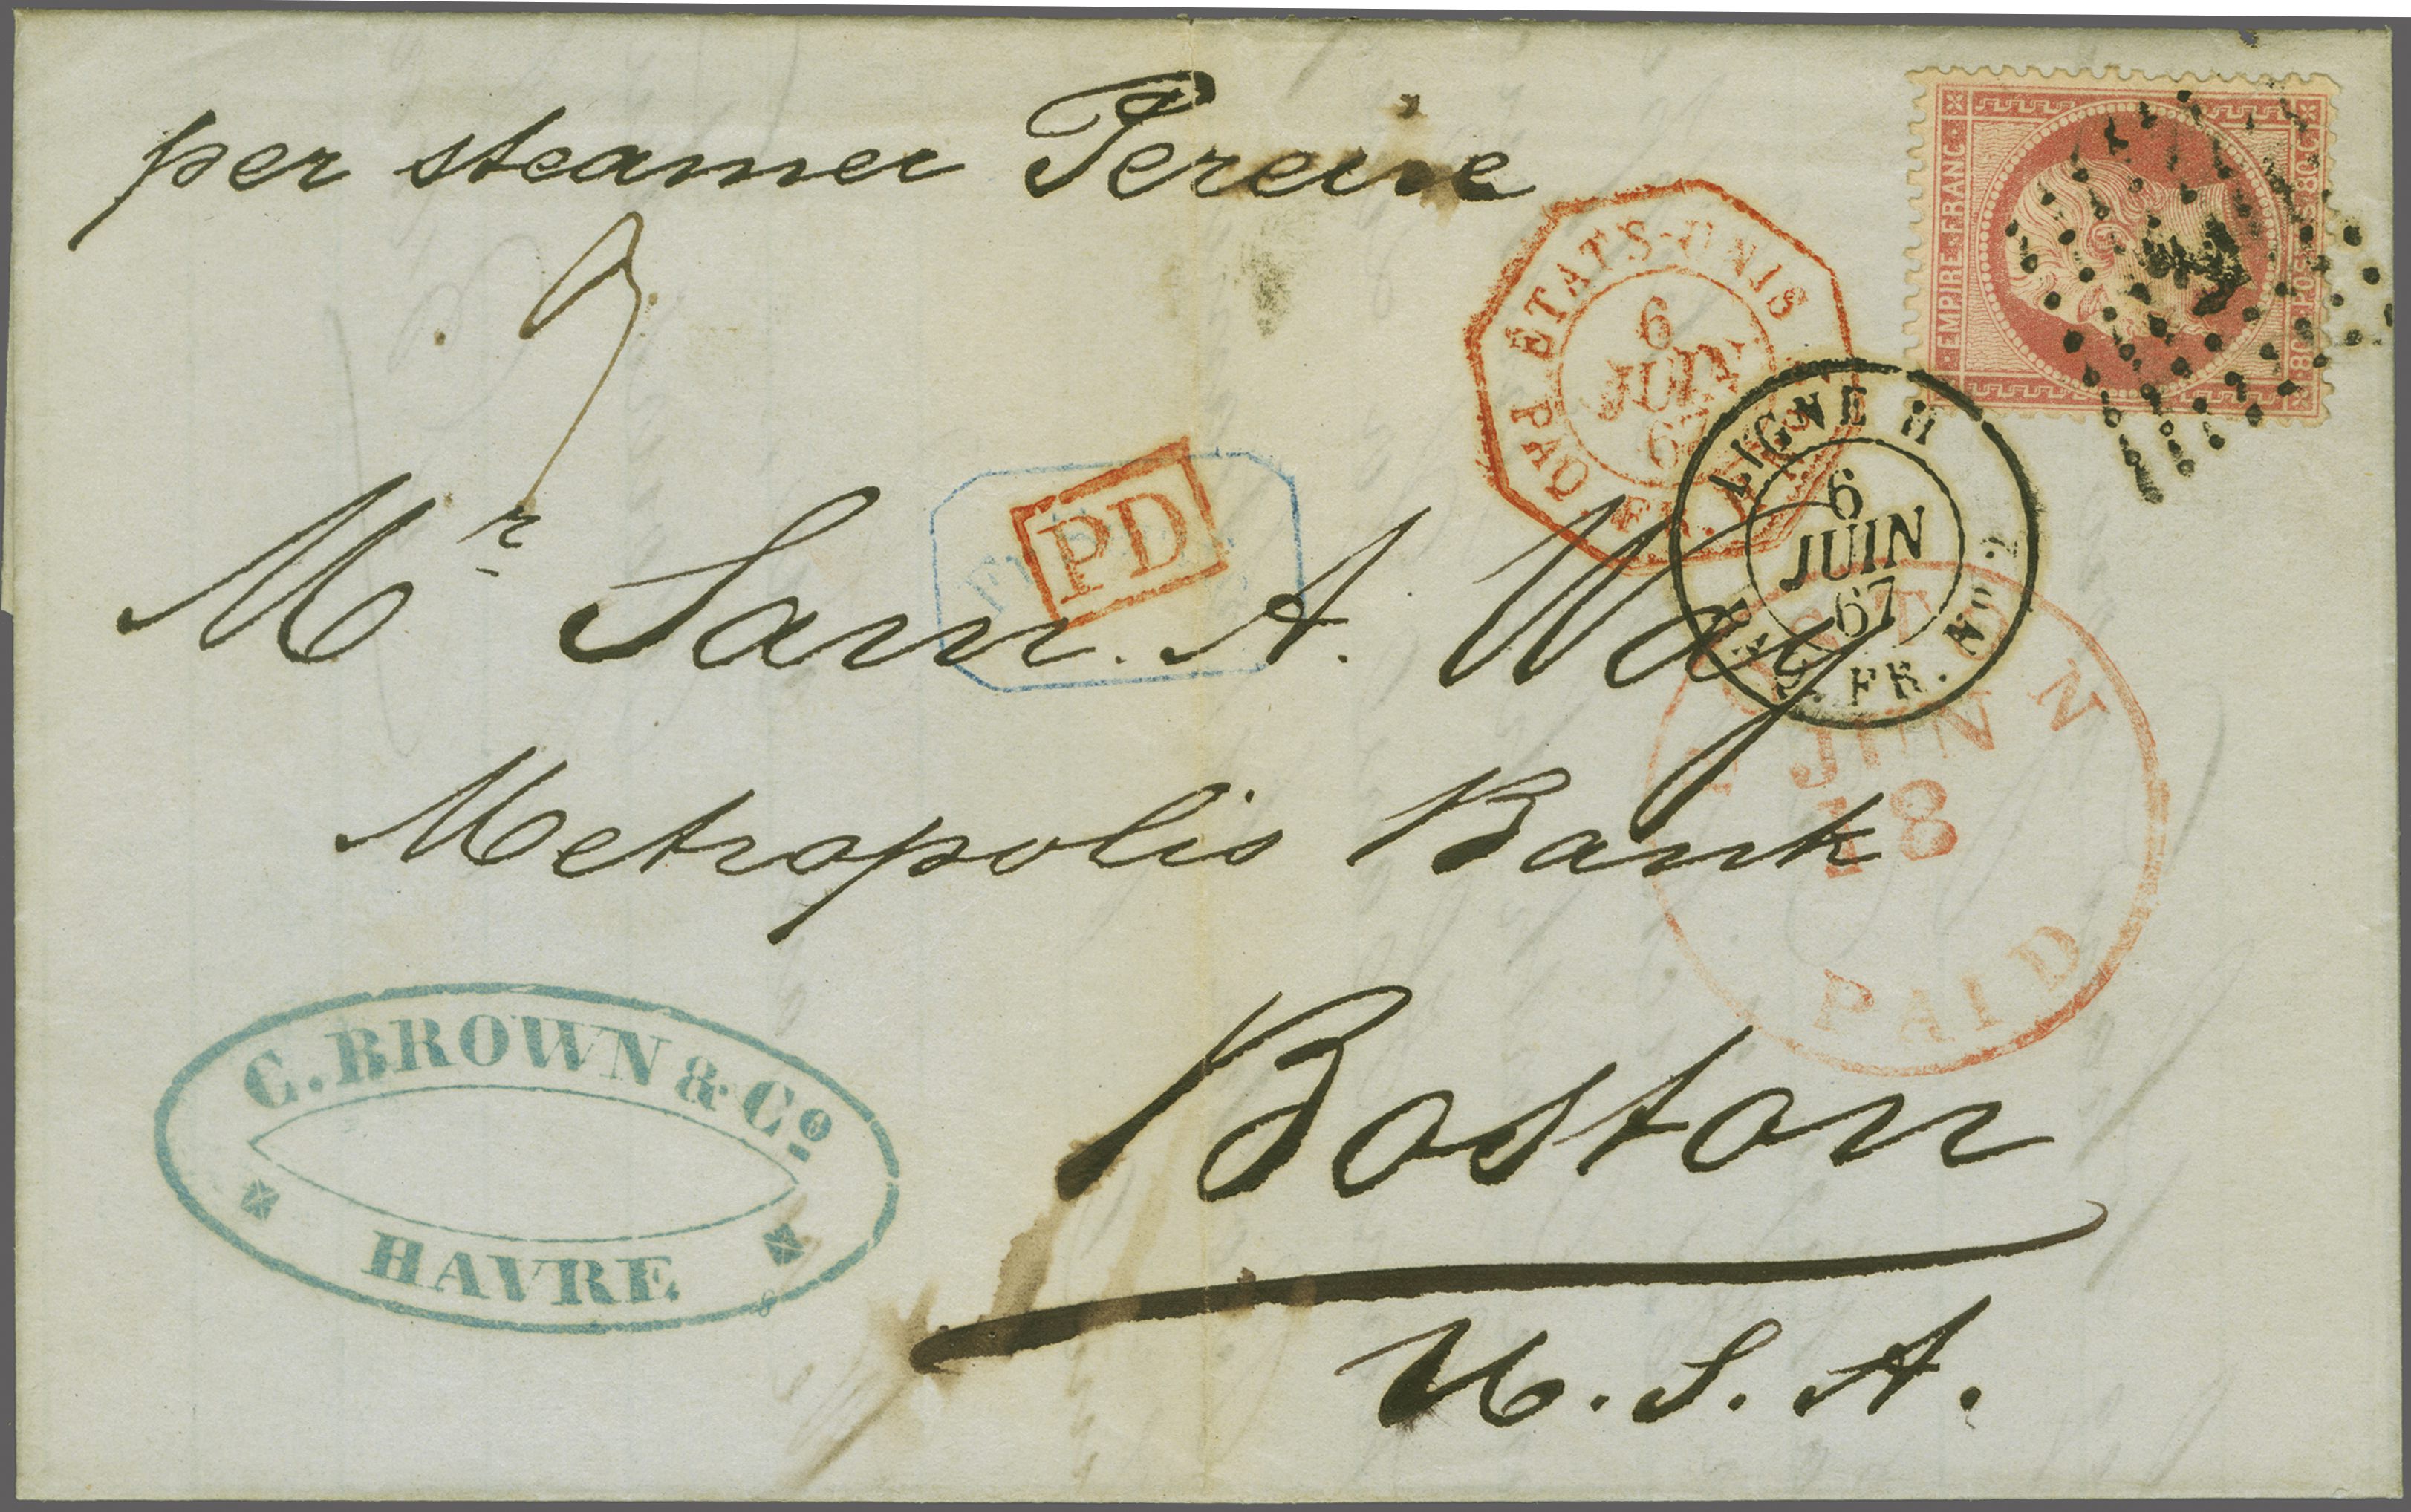 per steamer Pereire
EMPIRE·FRANC·
80·C·POSTES·80·C·
PAQ. FR. ÉTATS-UNIS
6
JUIN
67
LIGNE H
6
JUIN
67
PAQ. FR. No 2
PD
Mr Sam. A. Way
BOSTON
JUN
18
PAID
Metropolis Bank
C. BROWN & Co
HAVRE
Boston
U.S.A.